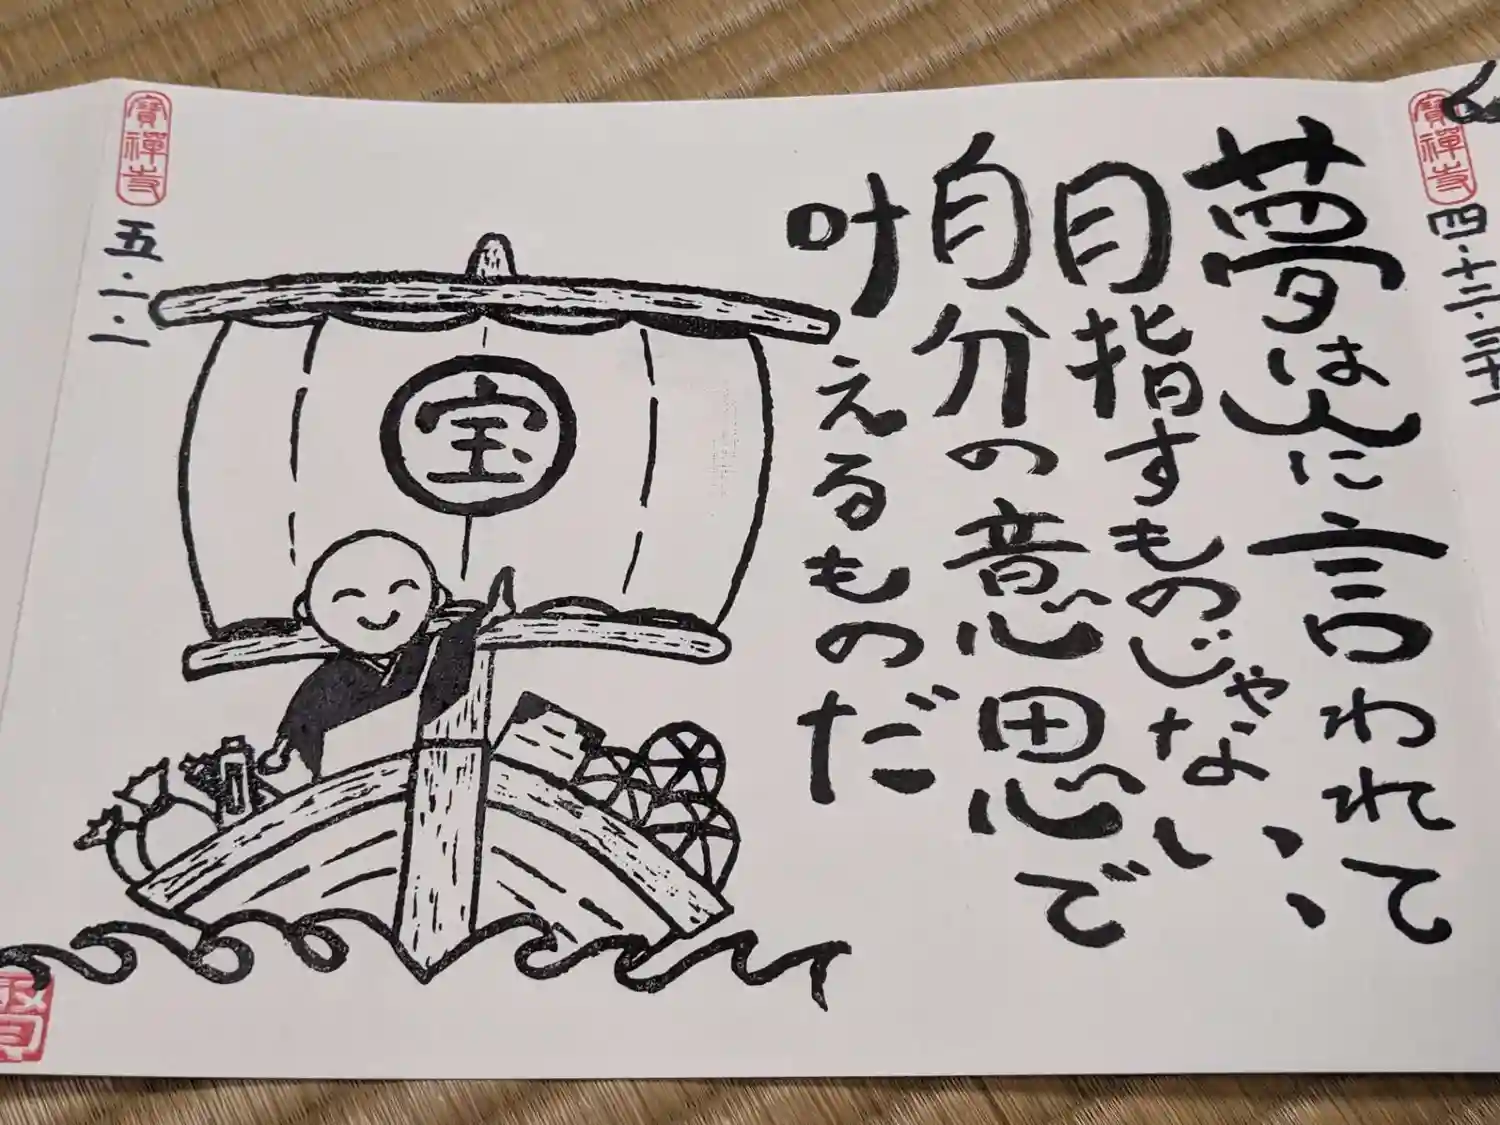 寶禪寺
四・十二・三十一
夢は人に言われて
目指すものじゃない、、
自分の意思で
叶えるものだ
宝
寶禪寺
五・一・一